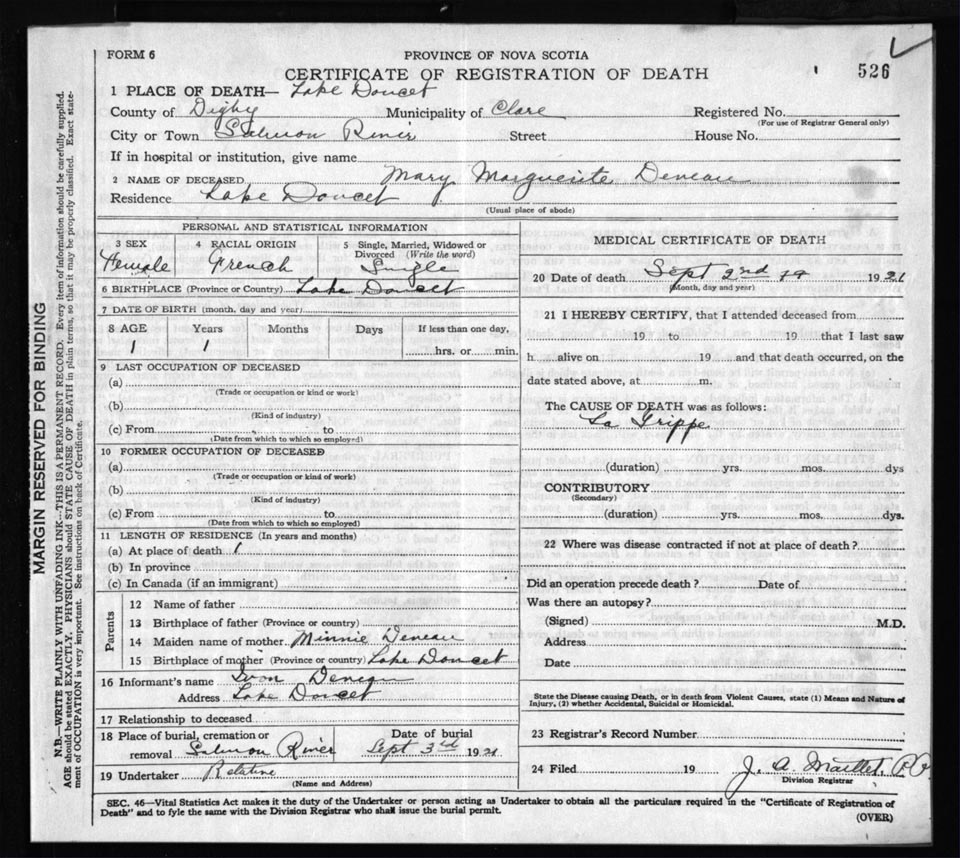 FORM 6
PROVINCE OF NOVA SCOTIA
CERTIFICATE OF REGISTRATION OF DEATH
526
1 PLACE OF DEATH— Lake Doucet
County of Digby Municipality of Clare Registered No.
(For use of Registrar General only)
City or Town Salmon River Street House No.
If in hospital or institution, give name
2 NAME OF DECEASED Mary Marguerite Deneau
Residence Lake Doucet
(Usual place of abode)
PERSONAL AND STATISTICAL INFORMATION
3 SEX 4 RACIAL ORIGIN 5 Single, Married, Widowed or
Divorced (Write the word)
Female French Single
6 BIRTHPLACE (Province or Country) Lake Doucet
7 DATE OF BIRTH (month, day and year)
8 AGE Years Months Days If less than one day,
1 1 hrs. or min.
9 LAST OCCUPATION OF DECEASED
(a)
(Trade or occupation or kind or work)
(b)
(Kind of industry)
(c) From to
(Date from which to which so employed)
10 FORMER OCCUPATION OF DECEASED
(a)
(Trade or occupation or kind of work)
(b)
(Kind of industry)
(c) From to
(Date from which to which so employed)
11 LENGTH OF RESIDENCE (In years and months)
(a) At place of death 1
(b) In province
(c) In Canada (if an immigrant)
Parents
12 Name of father
13 Birthplace of father (Province or country)
14 Maiden name of mother Minnie Deneau
15 Birthplace of mother (Province or country) Lake Doucet
16 Informant's name Deneau
Address Lake Doucet
17 Relationship to deceased
18 Place of burial, cremation or Date of burial
removal Salmon River Sept 3rd 1921
19 Undertaker Relative
(Name and Address)
MEDICAL CERTIFICATE OF DEATH
20 Date of death Sept 2nd 19 1921
(Month, day and year)
21 I HEREBY CERTIFY, that I attended deceased from
19 to 19 that I last saw
h alive on 19 and that death occurred, on the
date stated above, at m.
The CAUSE OF DEATH was as follows:
La Grippe
(duration) yrs. mos. dys
CONTRIBUTORY
(Secondary)
(duration) yrs. mos. dys.
22 Where was disease contracted if not at place of death?
Did an operation precede death? Date of
Was there an autopsy?
(Signed) M.D.
Address
Date
State the Disease causing Death, or in death from Violent Causes, state (1) Means and Nature of
Injury, (2) whether Accidental, Suicidal or Homicidal.
23 Registrar's Record Number
24 Filed 19 J. A. Maillet
Division Registrar
SEC. 46—Vital Statistics Act makes it the duty of the Undertaker or person acting as Undertaker to obtain all the particulars required in the "Certificate of Registration of
Death" and to fyle the same with the Division Registrar who shall issue the burial permit.
(OVER)
MARGIN RESERVED FOR BINDING
N.B.—WRITE PLAINLY WITH UNFADING INK—THIS IS A PERMANENT RECORD. Every item of information should be carefully supplied.
AGE should be stated EXACTLY. PHYSICIANS should STATE CAUSE OF DEATH in plain terms, so that it may be properly classified. Exact state-
ment of OCCUPATION is very important. See instructions on back of Certificate.